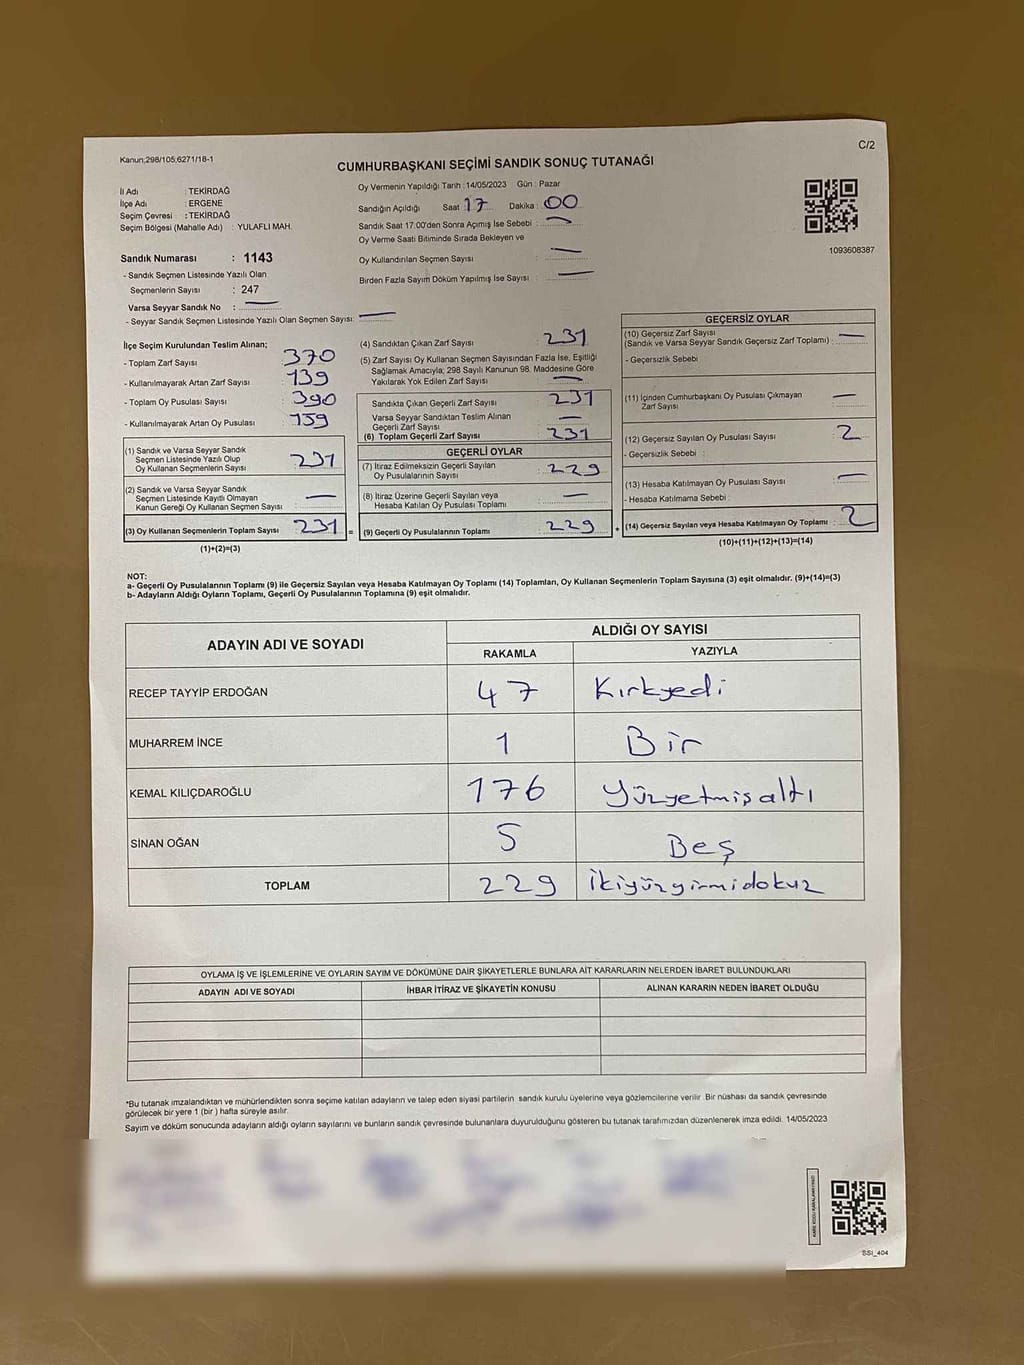 Kanun;298/105;6271/18-1
C/2
CUMHURBAŞKANI SEÇİMİ SANDIK SONUÇ TUTANAĞI
İl Adı : TEKİRDAĞ
İlçe Adı : ERGENE
Seçim Çevresi : TEKİRDAĞ
Seçim Bölgesi (Mahalle Adı) : YULAFLI MAH.
Sandık Numarası : 1143
- Sandık Seçmen Listesinde Yazılı Olan
Seçmenlerin Sayısı : 247
Varsa Seyyar Sandık No : —
- Seyyar Sandık Seçmen Listesinde Yazılı Olan Seçmen Sayısı: —
Oy Vermenin Yapıldığı Tarih :14/05/2023 Gün : Pazar
Sandığın Açıldığı Saat 17 Dakika : 00
Sandık Saat 17:00'den Sonra Açımış İse Sebebi : —
Oy Verme Saati Bitiminde Sırada Bekleyen ve
Oy Kullandırılan Seçmen Sayısı : —
Birden Fazla Sayım Döküm Yapılmış İse Sayısı : —
1093608387
İlçe Seçim Kurulundan Teslim Alınan;
- Toplam Zarf Sayısı : 370
- Kullanılmayarak Artan Zarf Sayısı : 139
- Toplam Oy Pusulası Sayısı : 390
- Kullanılmayarak Artan Oy Pusulası : 159
(1) Sandık ve Varsa Seyyar Sandık
Seçmen Listesinde Yazılı Olup
Oy Kullanan Seçmenlerin Sayısı : 231
(2) Sandık ve Varsa Seyyar Sandık
Seçmen Listesinde Kayıtlı Olmayan
Kanun Gereği Oy Kullanan Seçmen Sayısı : —
(3) Oy Kullanan Seçmenlerin Toplam Sayısı : 231
(1)+(2)=(3)
(4) Sandıktan Çıkan Zarf Sayısı : 231
(5) Zarf Sayısı Oy Kullanan Seçmen Sayısından Fazla İse, Eşitliği
Sağlamak Amacıyla; 298 Sayılı Kanunun 98. Maddesine Göre
Yakılarak Yok Edilen Zarf Sayısı : —
Sandıkta Çıkan Geçerli Zarf Sayısı : 231
Varsa Seyyar Sandıktan Teslim Alınan
Geçerli Zarf Sayısı : —
(6) Toplam Geçerli Zarf Sayısı : 231
GEÇERLİ OYLAR
(7) İtiraz Edilmeksizin Geçerli Sayılan
Oy Pusulalarının Sayısı : 229
(8) İtiraz Üzerine Geçerli Sayılan veya
Hesaba Katılan Oy Pusulası Toplamı : —
= (9) Geçerli Oy Pusulalarının Toplamı : 229 +
GEÇERSİZ OYLAR
(10) Geçersiz Zarf Sayısı
(Sandık ve Varsa Seyyar Sandık Geçersiz Zarf Toplamı) : —
- Geçersizlik Sebebi
(11) İçinden Cumhurbaşkanı Oy Pusulası Çıkmayan
Zarf Sayısı : —
(12) Geçersiz Sayılan Oy Pusulası Sayısı : 2
- Geçersizlik Sebebi :
(13) Hesaba Katılmayan Oy Pusulası Sayısı : —
- Hesaba Katılmama Sebebi :
(14) Geçersiz Sayılan veya Hesaba Katılmayan Oy Toplamı : 2
(10)+(11)+(12)+(13)=(14)
NOT:
a- Geçerli Oy Pusulalarının Toplamı (9) ile Geçersiz Sayılan veya Hesaba Katılmayan Oy Toplamı (14) Toplamları, Oy Kullanan Seçmenlerin Toplam Sayısına (3) eşit olmalıdır. (9)+(14)=(3)
b- Adayların Aldığı Oyların Toplamı, Geçerli Oy Pusulalarının Toplamına (9) eşit olmalıdır.
ADAYIN ADI VE SOYADI ALDIĞI OY SAYISI
RAKAMLA YAZIYLA
RECEP TAYYİP ERDOĞAN 47 Kırkyedi
MUHARREM İNCE 1 Bir
KEMAL KILIÇDAROĞLU 176 Yüzyetmişaltı
SİNAN OĞAN 5 Beş
TOPLAM 229 İkiyüzyirmidokuz
OYLAMA İŞ VE İŞLEMLERİNE VE OYLARIN SAYIM VE DÖKÜMÜNE DAİR ŞİKAYETLERLE BUNLARA AİT KARARLARIN NELERDEN İBARET BULUNDUKLARI
ADAYIN ADI VE SOYADI İHBAR İTİRAZ VE ŞİKAYETİN KONUSU ALINAN KARARIN NEDEN İBARET OLDUĞU
*Bu tutanak imzalandıktan ve mühürlendikten sonra seçime katılan adayların ve talep eden siyasi partilerin sandık kurulu üyelerine veya gözlemcilerine verilir. Bir nüshası da sandık çevresinde
görülecek bir yere 1 (bir ) hafta süreyle asılır.
Sayım ve döküm sonucunda adayların aldığı oyların sayılarını ve bunların sandık çevresinde bulunanlara duyurulduğunu gösteren bu tutanak tarafımızdan düzenlenerek imza edildi. 14/05/2023
SSI_404